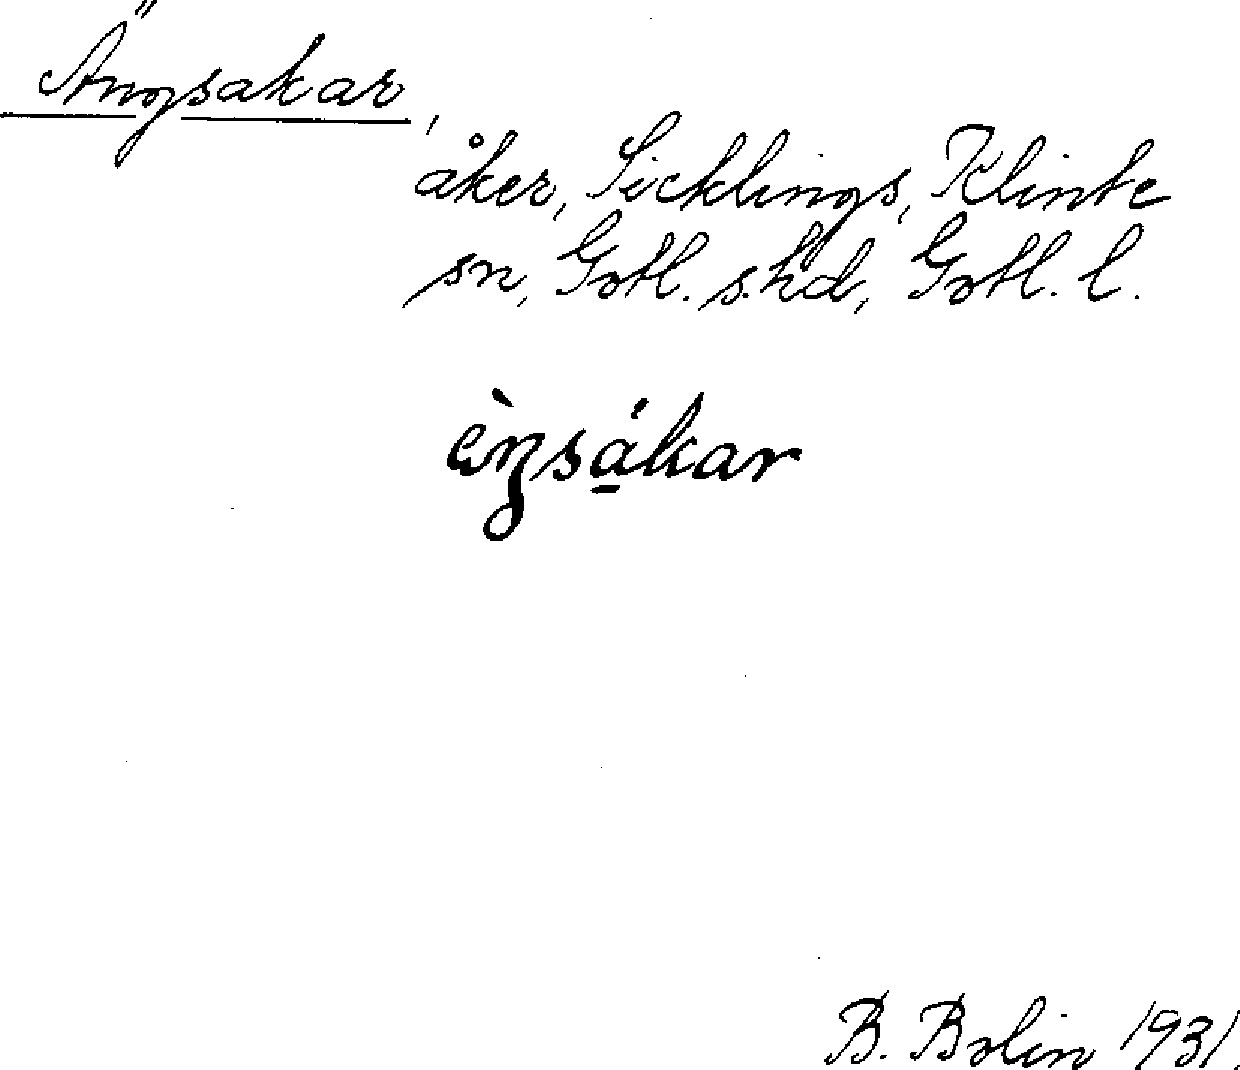 Ängsakar,
åker, Sicklings, Klinte
sn, Gotl. s. hd, Gotl. l.
èŋsákar
B. Bolin 1931.